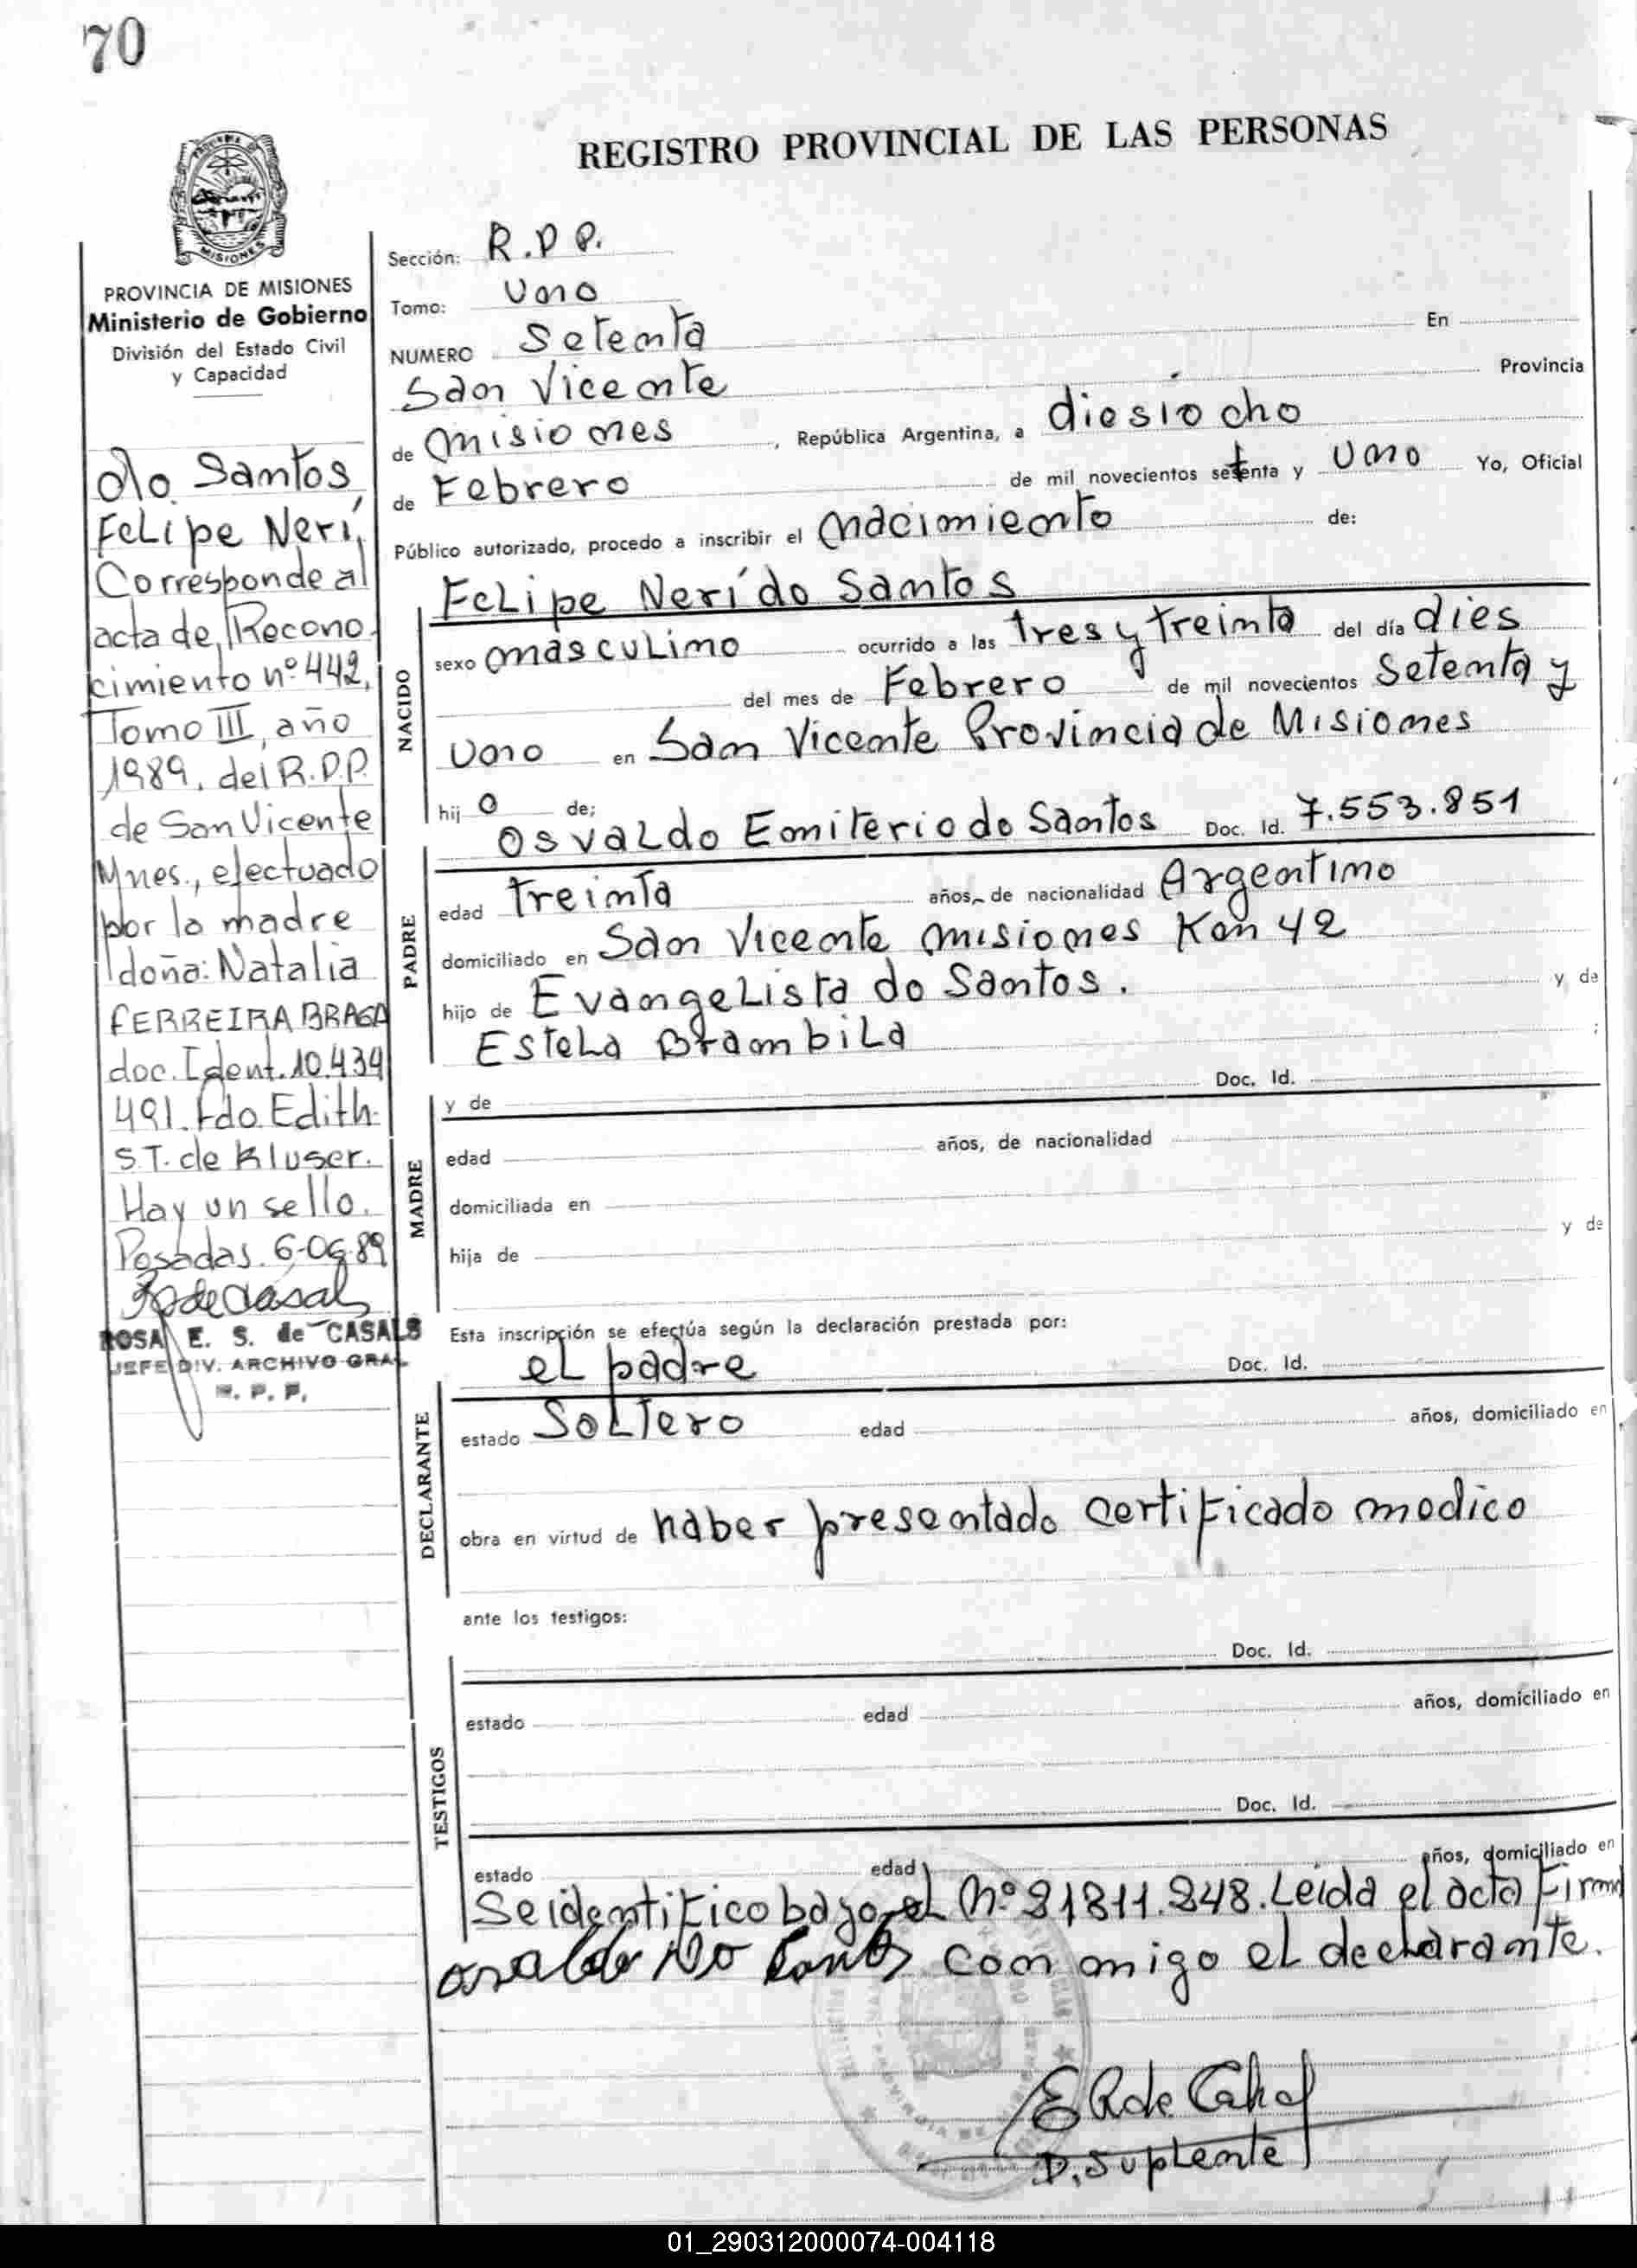 70
REGISTRO PROVINCIAL DE LAS PERSONAS
MISIONES
PROVINCIA DE MISIONES
Ministerio de Gobierno
División del Estado Civil
y Capacidad
do Santos,
Felipe Nerí,
Corresponde al
acta de Recono
cimiento nº 442,
Tomo III, año
1989, del R.P.P.
de San Vicente
Mnes., efectuado
por la madre
doña: Natalia
FERREIRA BRAGA
doc. Ident. 10.434
491. Fdo. Edith
S.T. de Kluser.
Hay un sello.
Posadas. 6-06-89
ROSA E. S. de CASALS
JEFE DIV. ARCHIVO GRAL
R. P. P.
Sección: R.P.P.
Tomo: Uno
NUMERO Setenta En
San Vicente Provincia
de misiones, República Argentina, a diesiocho
de Febrero de mil novecientos setenta y uno Yo, Oficial
Público autorizado, procedo a inscribir el nacimiento de:
NACIDO
Felipe Nerí do Santos
sexo masculino ocurrido a las tres y treinta del día dies
del mes de Febrero de mil novecientos setenta y
uno en San Vicente Provincia de Misiones
hijo de;
PADRE
Osvaldo Emiterio do Santos Doc. Id. 7.553.851
edad treinta años, de nacionalidad Argentino
domiciliado en San Vicente misiones Km 42
hijo de Evangelista do Santos. y de
Estela Brambila ;
MADRE
y de Doc. Id.
edad años, de nacionalidad
domiciliada en
hija de y de
Esta inscripción se efectúa según la declaración prestada por:
DECLARANTE
el padre Doc. Id.
estado Soltero edad años, domiciliado en
obra en virtud de haber presentado certificado modico
ante los testigos:
TESTIGOS
Doc. Id.
estado edad años, domiciliado en
Doc. Id.
estado edad años, domiciliado en
Se identifico bajo el Nº 21811.248. Leida el acta Firma
con migo el declarante.
D. Suplente
01_290312000074-004118